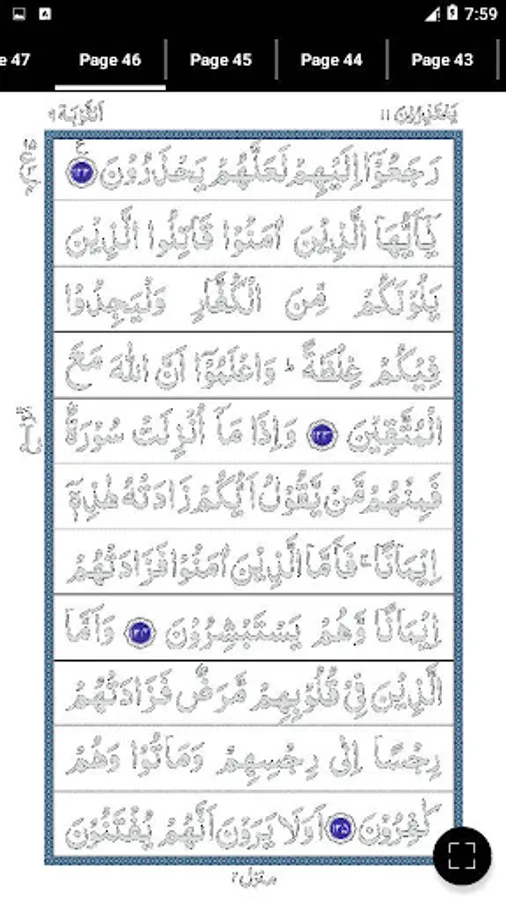 7:59
e 47 Page 46 Page 45 Page 44 Page 43
یَعْتَذِرُوْنَ ۱۱ اَلتَّوْبَة ۹
رَجَعُوْۤا اِلَیْهِمْ لَعَلَّهُمْ یَحْذَرُوْنَ ۱۲۲
یٰۤاَیُّهَا الَّذِیْنَ اٰمَنُوْا قَاتِلُوا الَّذِیْنَ
یَلُوْنَكُمْ مِّنَ الْكُفَّارِ وَلْیَجِدُوْا
فِیْكُمْ غِلْظَةً ؕ وَاعْلَمُوْۤا اَنَّ اللّٰهَ مَعَ
الْمُتَّقِیْنَ ۱۲۳ وَاِذَا مَاۤ اُنْزِلَتْ سُوْرَةٌ
فَمِنْهُمْ مَّنْ یَّقُوْلُ اَیُّكُمْ زَادَتْهُ هٰذِهٖۤ
اِیْمَانًا ۚ فَاَمَّا الَّذِیْنَ اٰمَنُوْا فَزَادَتْهُمْ
اِیْمَانًا وَّهُمْ یَسْتَبْشِرُوْنَ ۱۲۴ وَاَمَّا
الَّذِیْنَ فِیْ قُلُوْبِهِمْ مَّرَضٌ فَزَادَتْهُمْ
رِجْسًا اِلٰى رِجْسِهِمْ وَمَاتُوْا وَهُمْ
كٰفِرُوْنَ ۱۲۵ اَوَلَا یَرَوْنَ اَنَّهُمْ یُفْتَنُوْنَ
منزل ۲